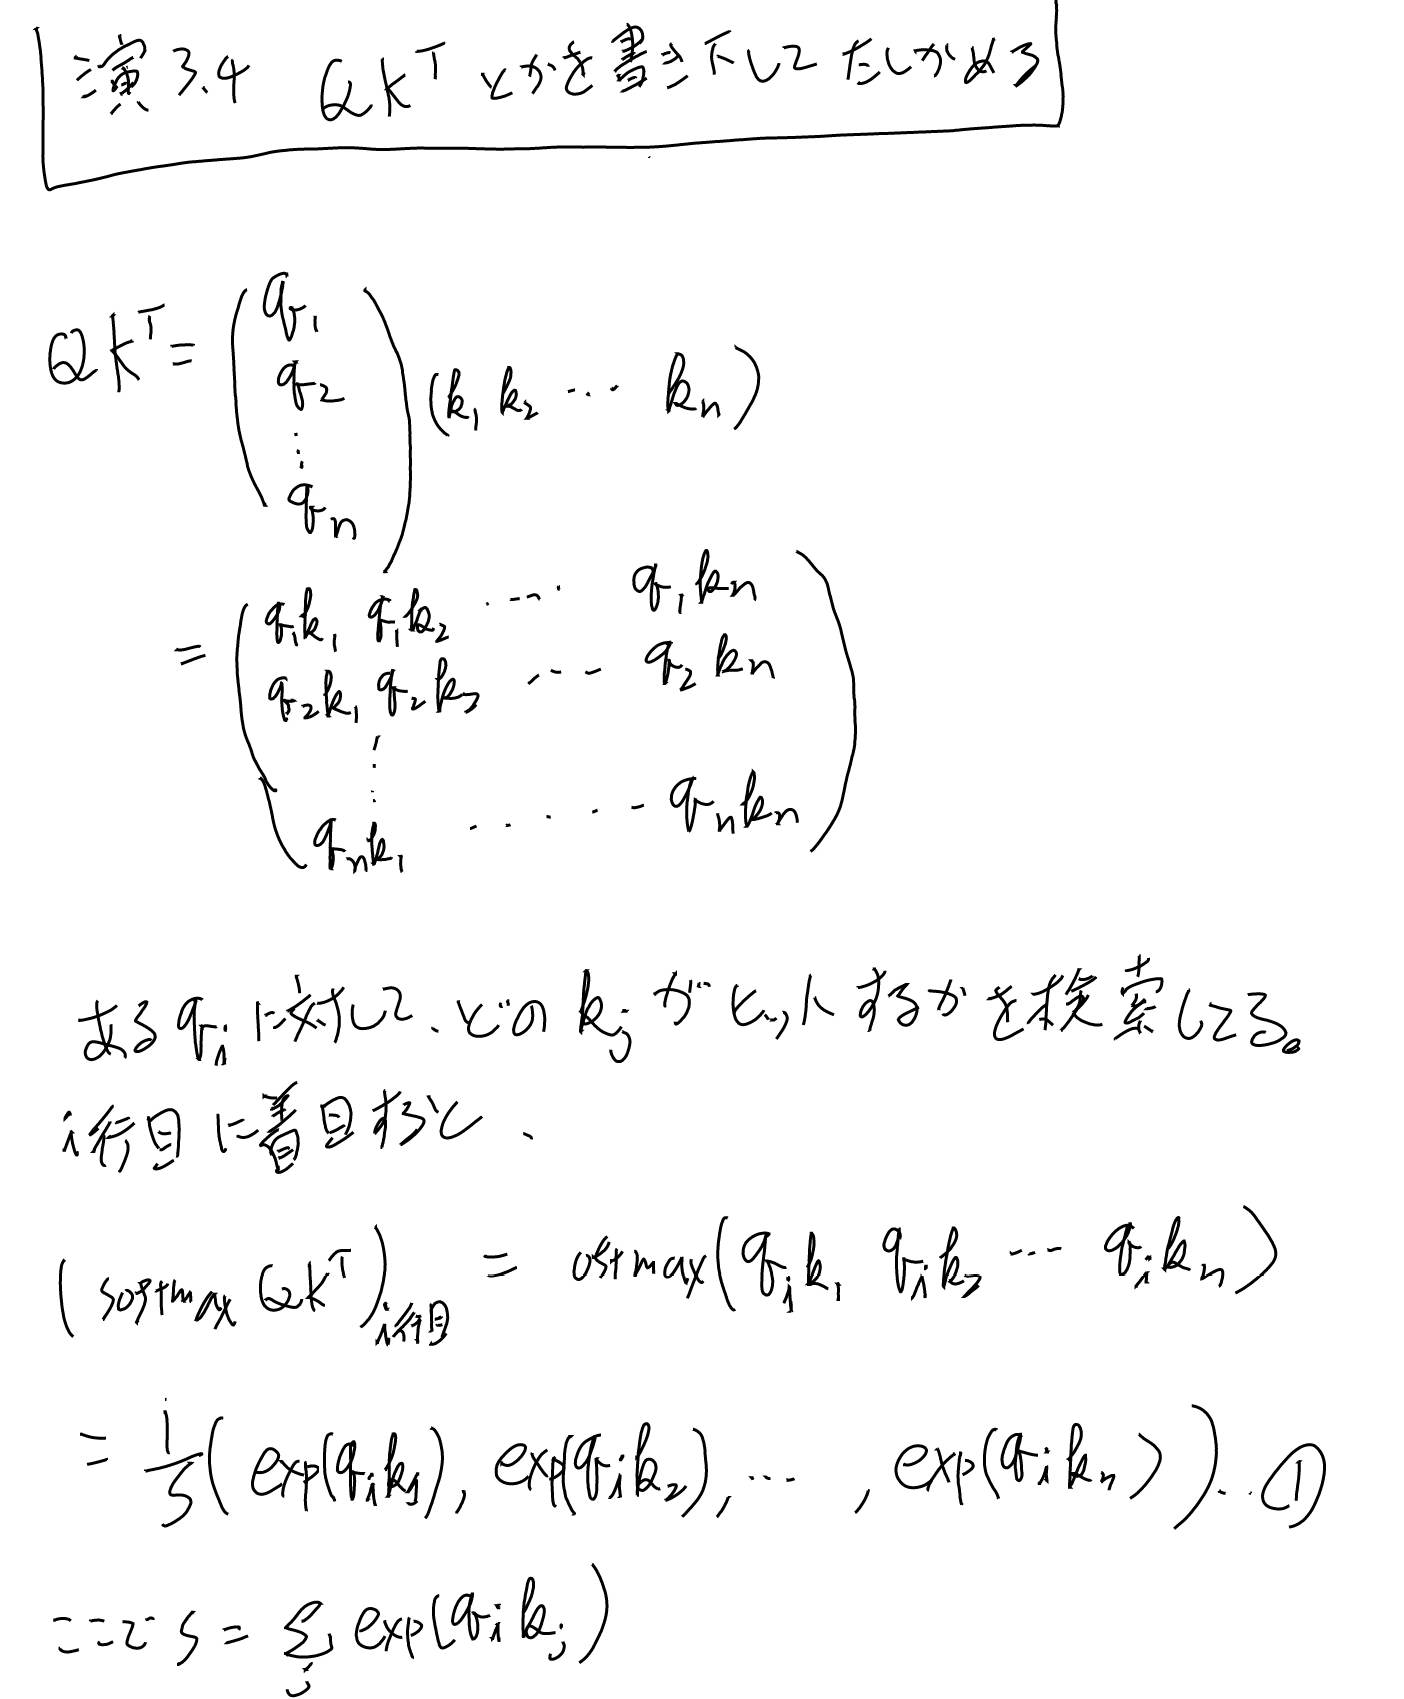 演3.4 QK^T とかを書き下してたしかめろ
QK^T = (q_1 q_2 ⋮ q_n) (k_1 k_2 ⋯ k_n)
= (q_1k_1 q_1k_2 ⋯ q_1k_n
q_2k_1 q_2k_2 ⋯ q_2k_n
⋮
q_nk_1 ⋯⋯ q_nk_n)
ある q_i に対して、どの k_j がヒットするかを検索してる。
i行目に着目すると、
(softmax QK^T)_i行目 = oftmax(q_ik_1 q_ik_2 ⋯ q_ik_n)
= 1/S (exp(q_ik_1), exp(q_ik_2), ⋯ , exp(q_ik_n)) ‥①
ここで S = Σ_j exp(q_ik_j)